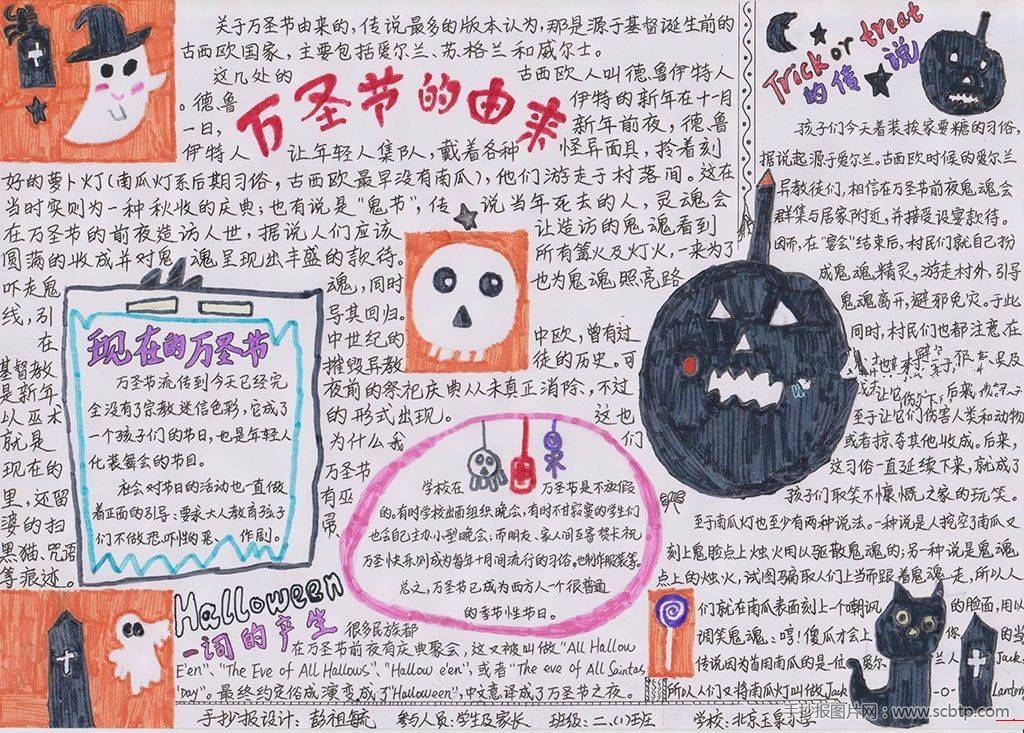 关于万圣节由来的，传说最多的版本认为，那是源于基督诞生前的
古西欧国家，主要包括爱尔兰、苏格兰和威尔士。
这几处的
古西欧人叫德鲁伊特人
。德鲁
伊特的新年在十一月
一日，
新年前夜，德鲁
万圣节的由来
伊特人
让年轻人集队，戴着各种
怪异面具，拎着刻
好的萝卜灯(南瓜灯系后期习俗，古西欧最早没有南瓜)，他们游走于村落间。这在
当时实则为一种秋收的庆典；也有说是“鬼节”，传
说当年死去的人，灵魂会
在万圣节的前夜造访人世，据说人们应该
让造访的鬼魂看到
圆满的收成并对鬼
魂呈现出丰盛的款待。
所有篝火及灯火，一来为了
吓走鬼
魂，同时
也为鬼魂照亮路
线，引
导其回归。
在
中世纪的
中欧，曾有过
基督教
摧毁异教
徒的历史。可
是新年
夜前的祭祀庆典从未真正消除，不过
以巫术
的形式出现。
这也
就是
为什么我
们
现在的
万圣节
里，还留
有巫
婆的扫
帚、
黑猫、咒语
等痕迹。
现在的万圣节
万圣节流传到今天已经完
全没有了宗教迷信色彩，它成了
一个孩子们的节日，也是年轻人
化装舞会的节目。
社会对节日的活动也一直做
着正面的引导：要求大人教育孩子
们不做恐吓性的恶、作剧。
学校在
万圣节是不放假
的。有时学校出面组织晚会，有时不甘寂寞的学生们
也会自己主办小型晚会；而朋友、家人间互寄贺卡祝
万圣快乐则成为每年十月间流行的习俗，也制作服装等。
总之，万圣节已成为西方人一个很普通
的季节性节日。
Halloween
一词的产生
很多民族都
在万圣节前夜有庆典聚会，这又被叫做"All Hallow
E'en"、"The Eve of All Hallows"、"Hallow e'en"，或者"The eve of All Saintas
'Day"。最终约定俗成演变成了"Halloween"，中文意译成了万圣节之夜。
Trick or treat
的传说
孩子们今天着装挨家要糖的习俗，
据说起源于爱尔兰。古西欧时候的爱尔兰
异教徒们，相信在万圣节前夜鬼魂会
群集与居家附近，并接受设宴款待。
因而，在“宴会”结束后，村民们就自己扮
成鬼魂精灵，游走村外，引导
鬼魂离开，避邪免灾。于此
同时，村民们也都注意在
至于让它们伤害人类和动物
或者掠夺其他收成。后来，
这习俗一直延续下来，就成了
孩子们取笑不慷慨之家的玩笑。
至于南瓜灯也至少有两种说法。一种说是人挖空了南瓜又
刻上鬼脸点上烛火用以驱散鬼魂的；另一种说是鬼魂
点上的烛火，试图骗取人们上当而跟着鬼魂走，所以人
们就在南瓜表面刻上个嘲讽
的脸面，用以
调笑鬼魂：哼！傻瓜才会上
你
的当
传说因为首用南瓜的是一位
爱尔
兰人
Jack
所以人们又将南瓜灯叫做Jack
-o-
Lantern
手抄报设计：彭祖毓 参与人员：学生及家长 班级：二、(1)
学校：北京玉泉小学
手抄报图片网：www.scbtp.com